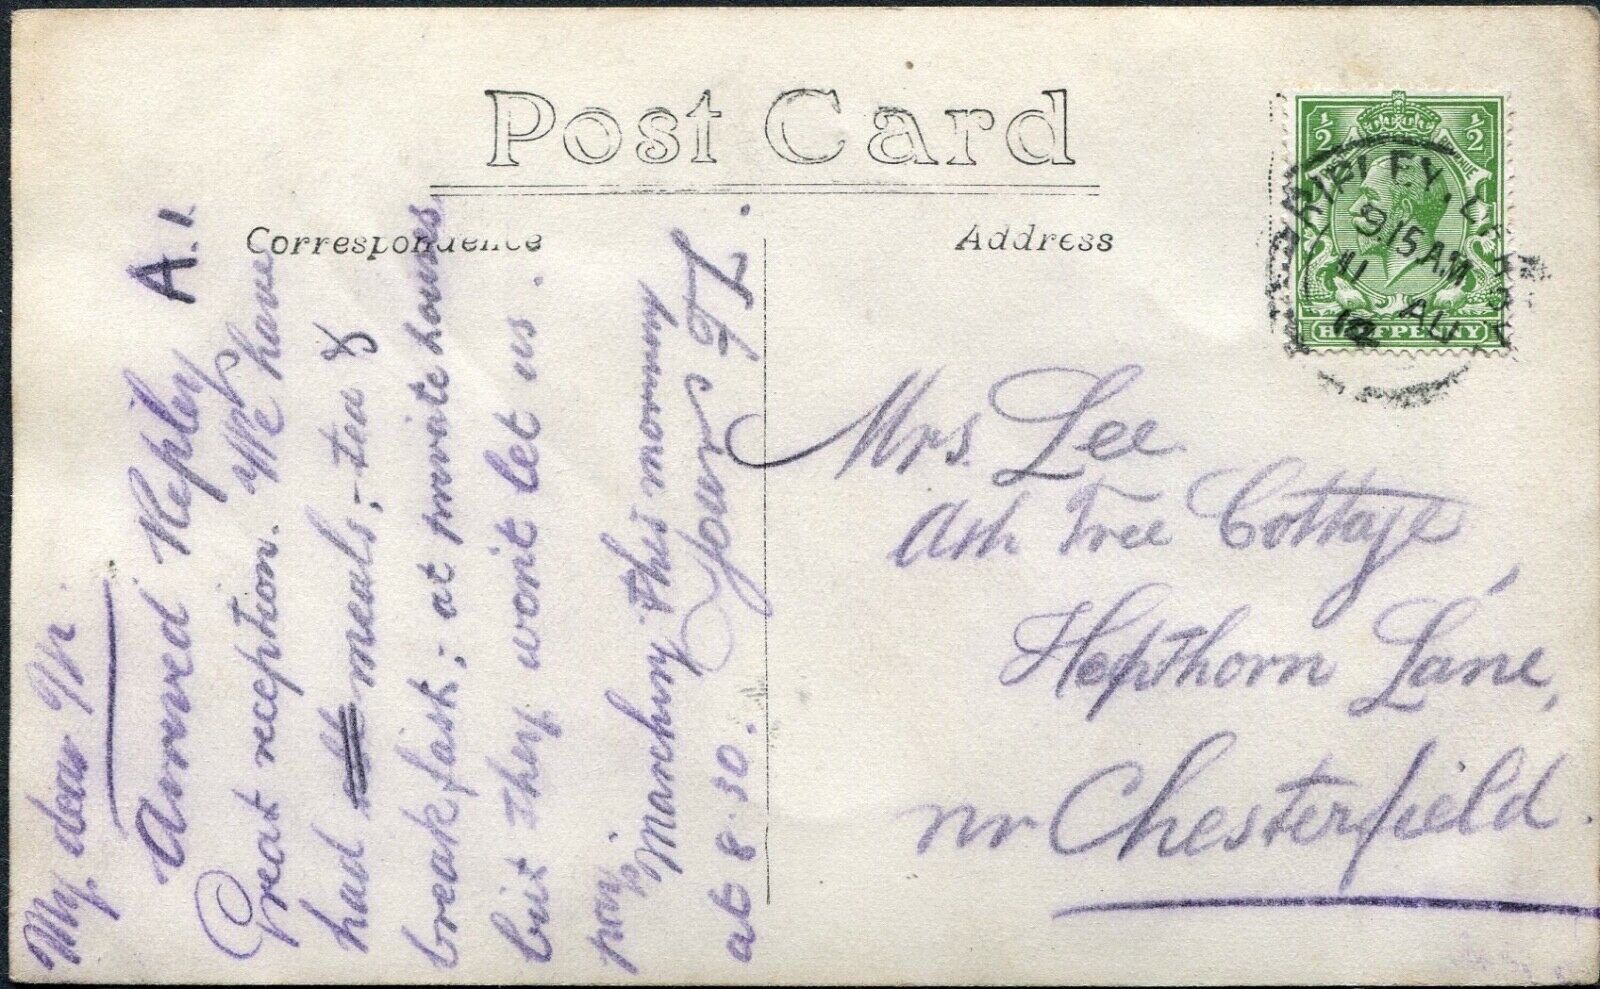 Post Card
Correspondence
Address
1/2 1/2
HALFPENNY
RIPLEY
9.15 AM
11 AU
My dear
Arrived Repley A.1.
Great reception. We have
had meals, - tea &
breakfast; - at private houses
but they won't let us
pay
Marching this morning
at 8.30. Yours
Mrs. Lee
Ash Tree Cottage
Hepthorn Lane,
nr Chesterfield.